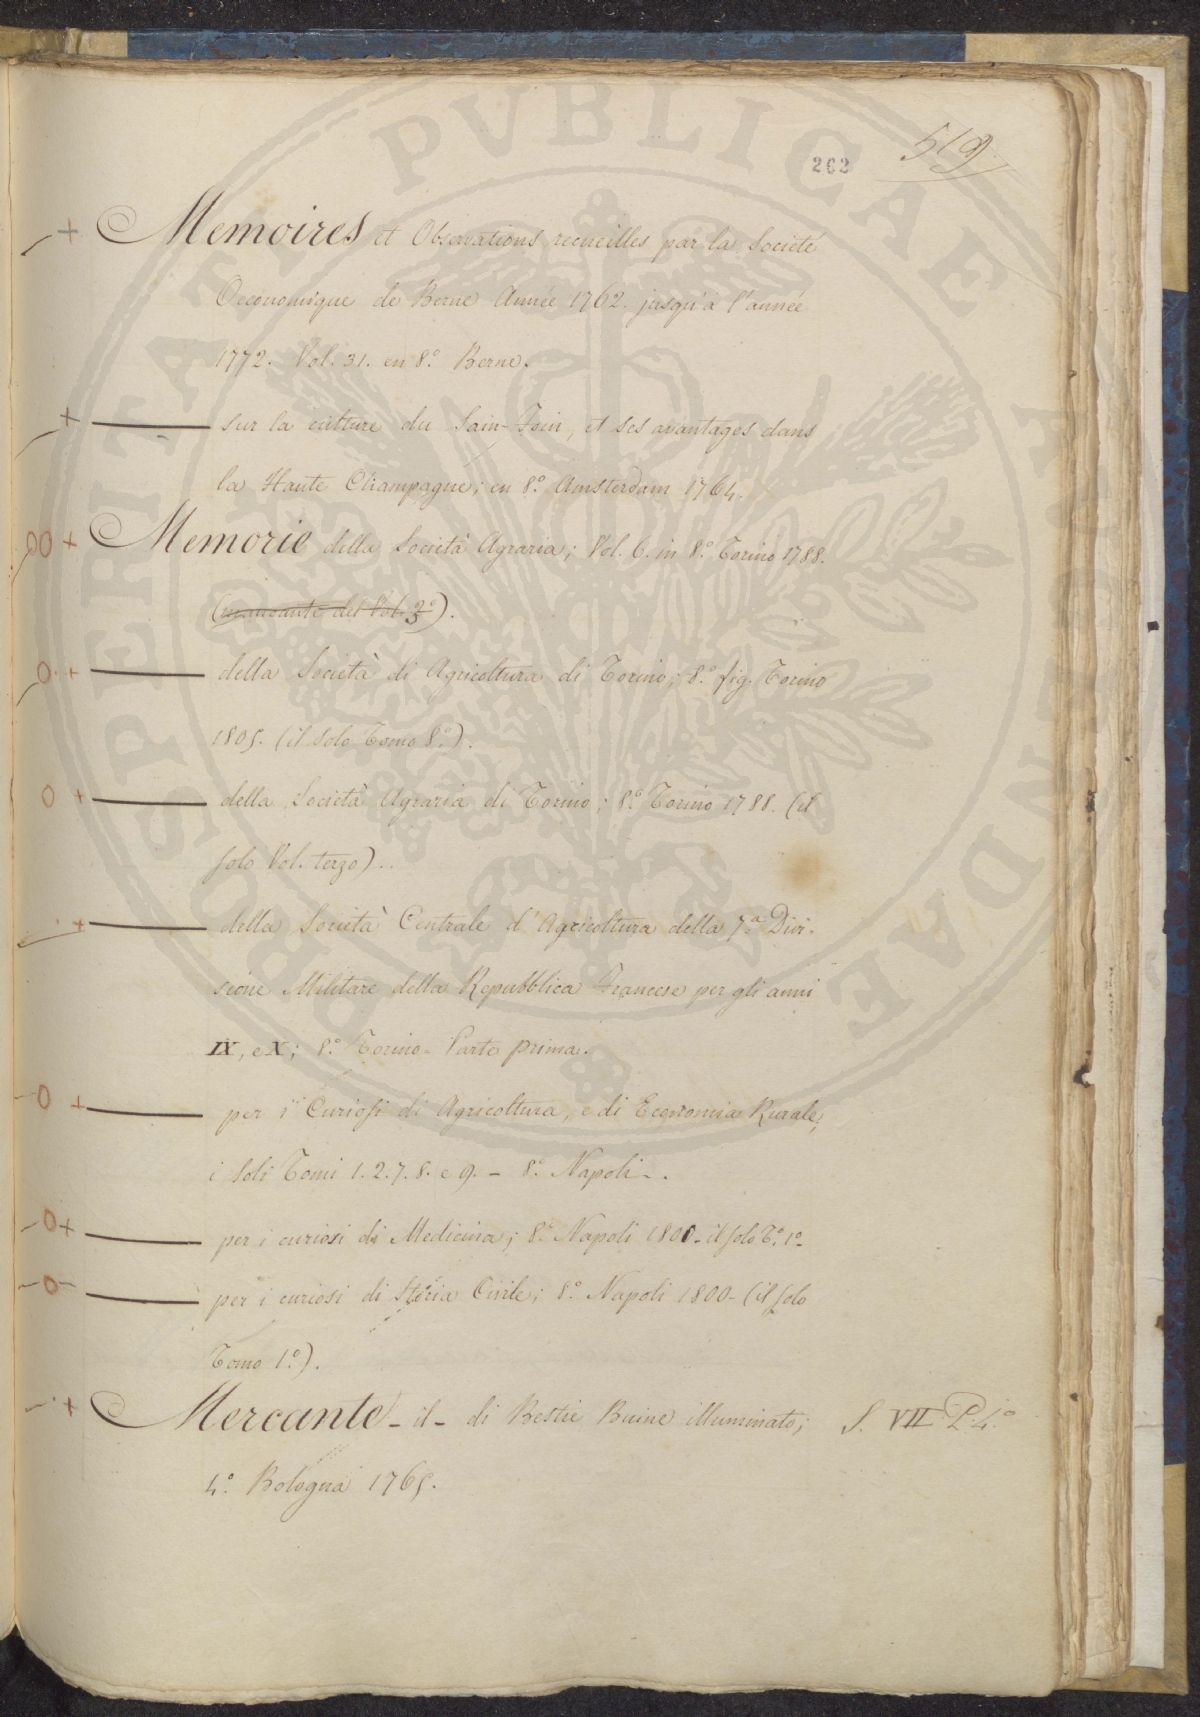 262
519
Memoires et Observations recueilles par la Societé
Oeconomique de Berne Année 1762. jusqu'à l'année
1772. Vol. 31. en 8.° Berne.
+ ——— sur la culture du Sain-Foin, et ses avantages dans
la Haute Champagne; en 8.° Amsterdam 1764.
00 + Memorie della Società Agraria; Vol. 6. in 8.° Torino 1788.
(mancante del Vol. 3°).
0. + ——— della Società di Agricoltura di Torino; 8.° fig. Torino
1805. (il solo Tomo 8.°).
0 + ——— della Società Agraria di Torino; 8.° Torino 1788. (il
solo Vol. terzo)..
+ ——— della Società Centrale d'Agricoltura della 7.a Divi-
sione Militare della Repubblica Francese per gli anni
IX, e X; 8.° Torino - Parte prima.
0 + ——— per i Curiosi di Agricoltura, e di Economia Rurale;
i soli Tomi 1. 2. 7. 8. e 9. - 8.° Napoli -.
0 + ——— per i curiosi di Medicina; 8.° Napoli 1800 - il solo T.° 1°-
0 - ——— per i curiosi di Storia Civile; 8.° Napoli 1800 - (il solo
Tomo 1.°).
+ Mercante - il - di Bestie Buine illuminato; S. VII P. 4.°
4.° Bologna 1765.
PROSPERITATI PVBLICAE AVGENDAE